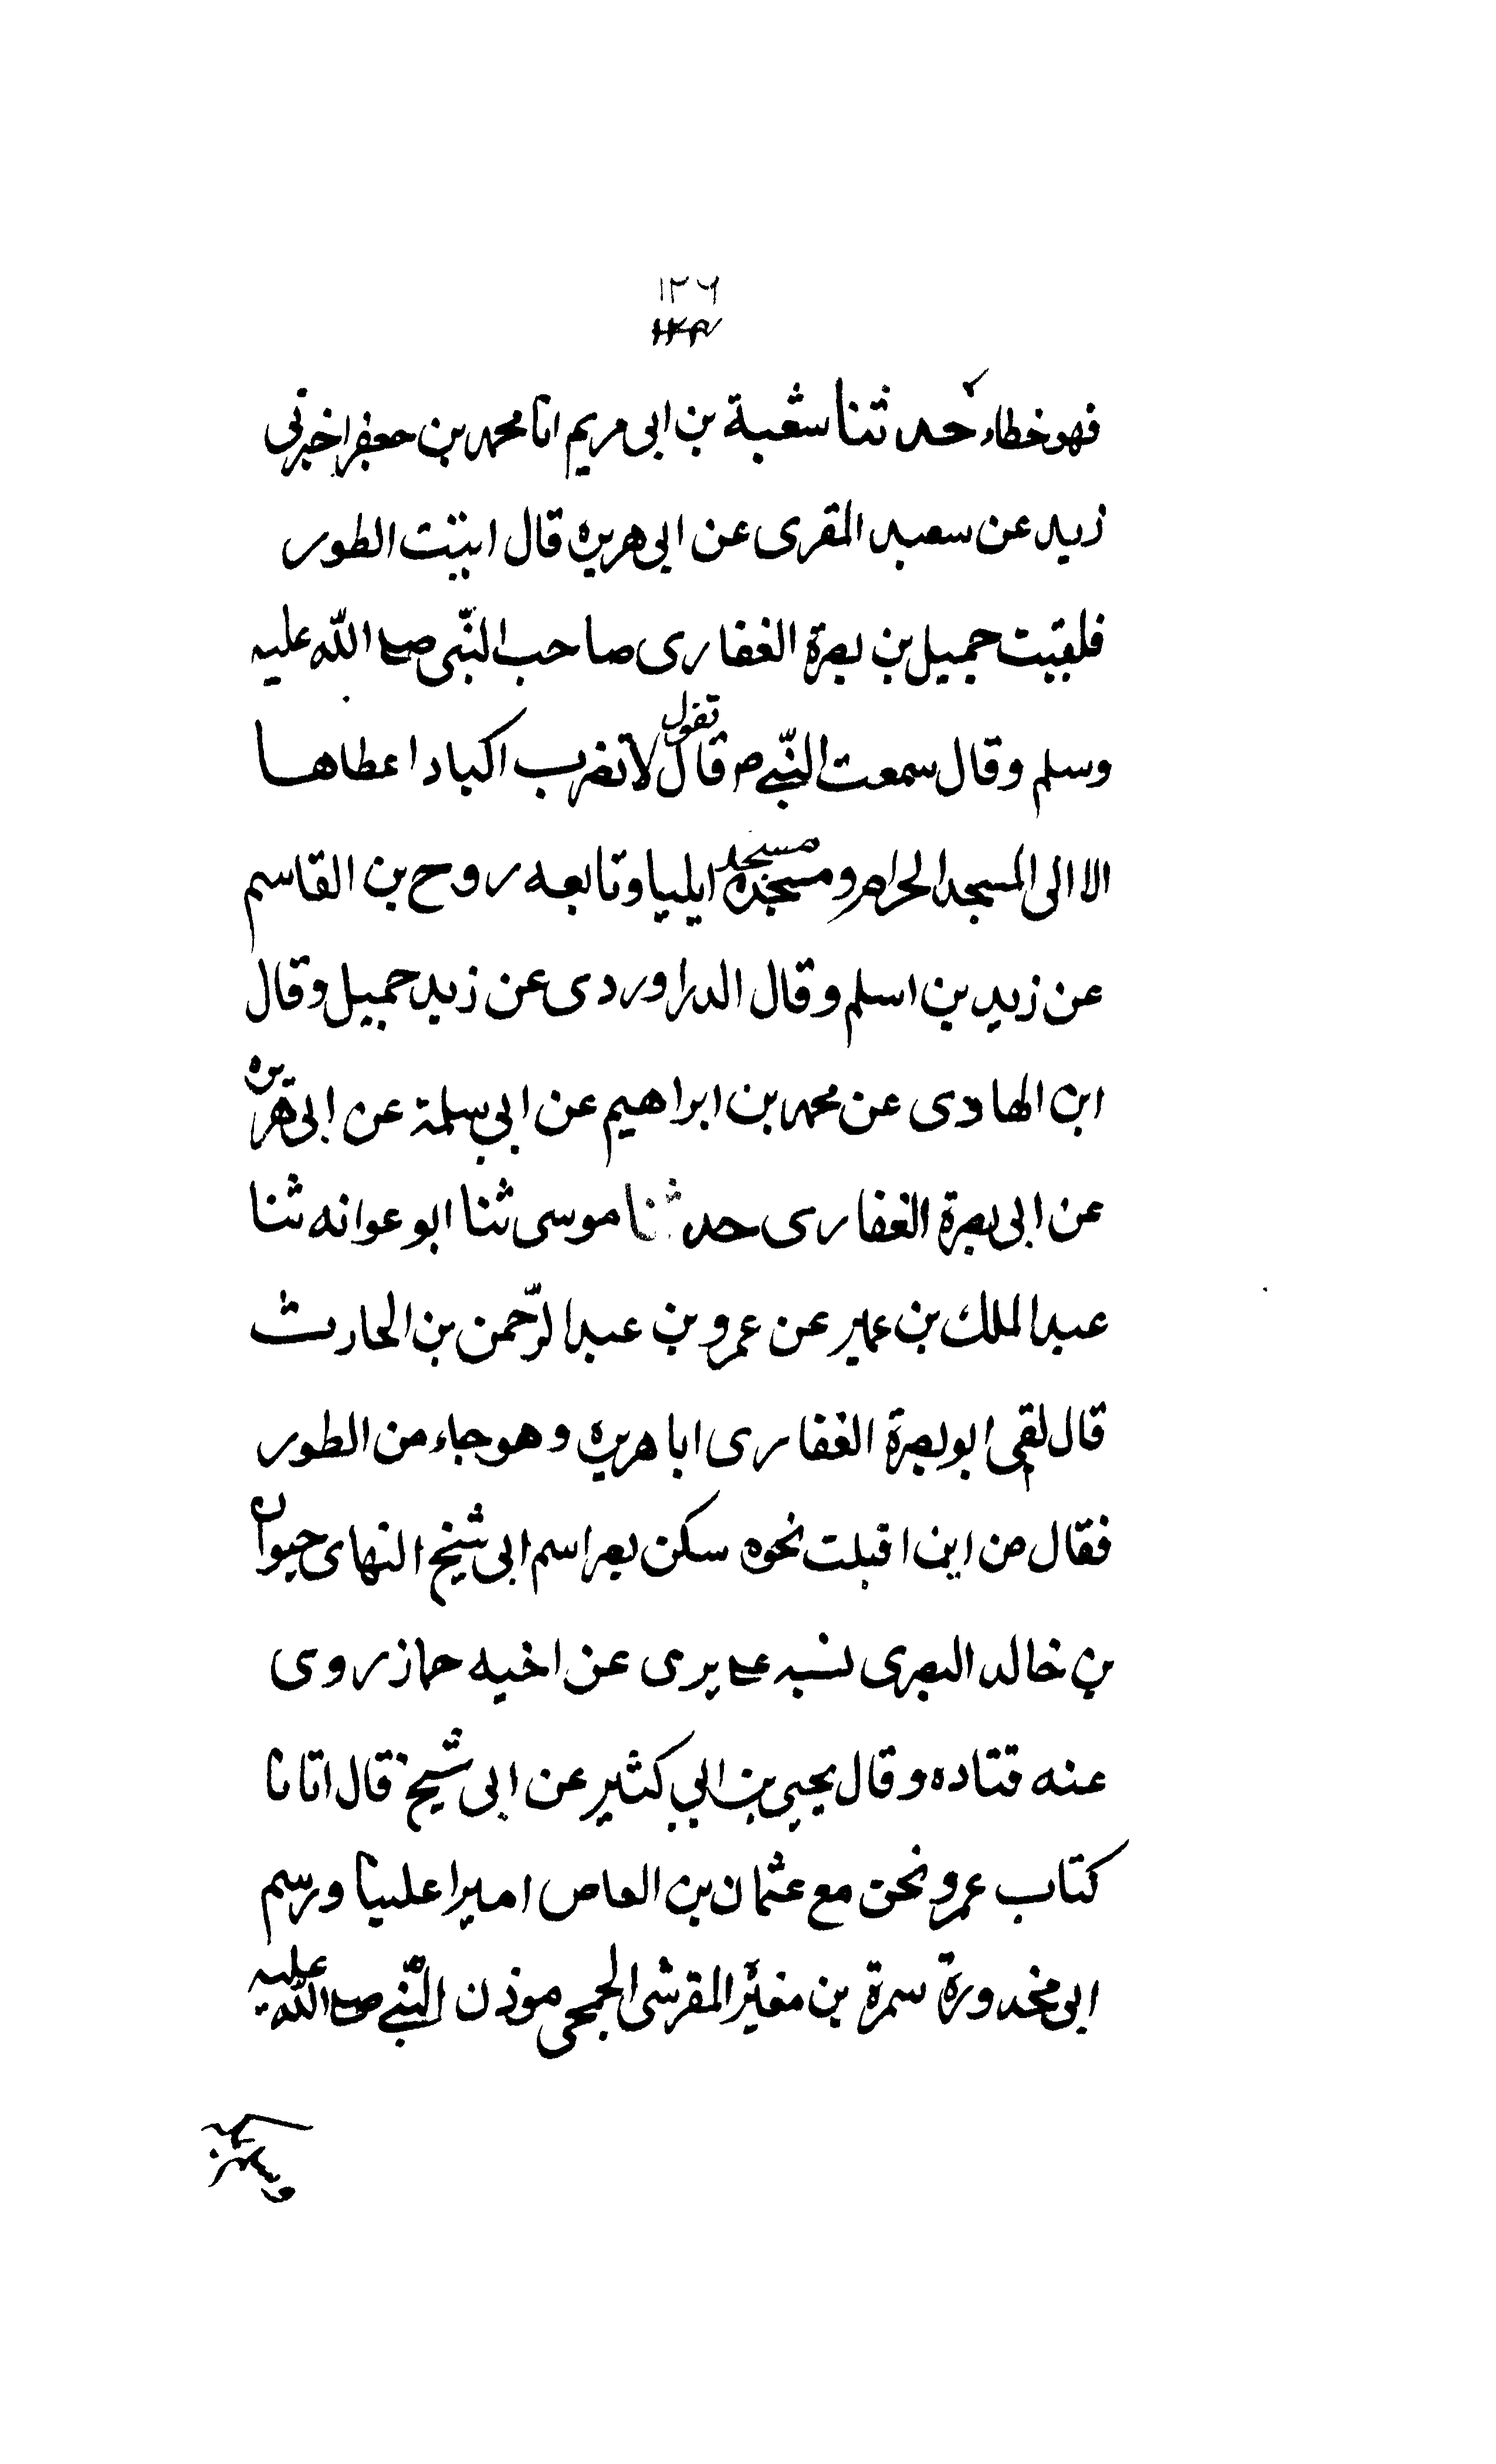 ١٢٦
فهو خطاء حدثنا شعبة بن ابى مريم انا محمد بن جعفر اخبرنى
زيد عن سعيد المقرى عن ابى هريره قال اتيت الطور
فلقيت جميل بن بصرة الغفارى صاحب النّبى صلى اللّه عليه
وسلم وقال سمعت النّبى ص قال تقول لا تضرب اكباد اعطاها
الا الى المسجد الحرام و مسجده مسجد ايليا وتابعه روح بن القاسم
عن زيد بن اسلم وقال الدراوردى عن زيد حميل وقال
ابن الهادى عن محمد بن ابراهيم عن ابى سلمة عن ابى هريره
عن ابى بصرة الغفارى حدثنا موسى ثنا ابو عوانه ثنا
عبد الملك بن عمير عن عمرو بن عبد الرّحمن بن الحارث
قال لقى ابو بصرة الغفارى ابا هريره وهو جاء من الطور
فقال من اين اقبلت نحوه سكن بصر اسم ابى شيخ النهاى حيوان
بن خالد البصرى نسبه على يرى عن اخيه حماز روى
عنه قتاده وقال يحيى بن ابى كثير عن ابى شيخ قال اتانا
كتاب عمر ونحن مع عثمان بن العاص اميرا علينا ورسم
ابى مخدورة سمرة بن مغير المقرشى الجمحى موذن النّبى صلى اللّه عليه